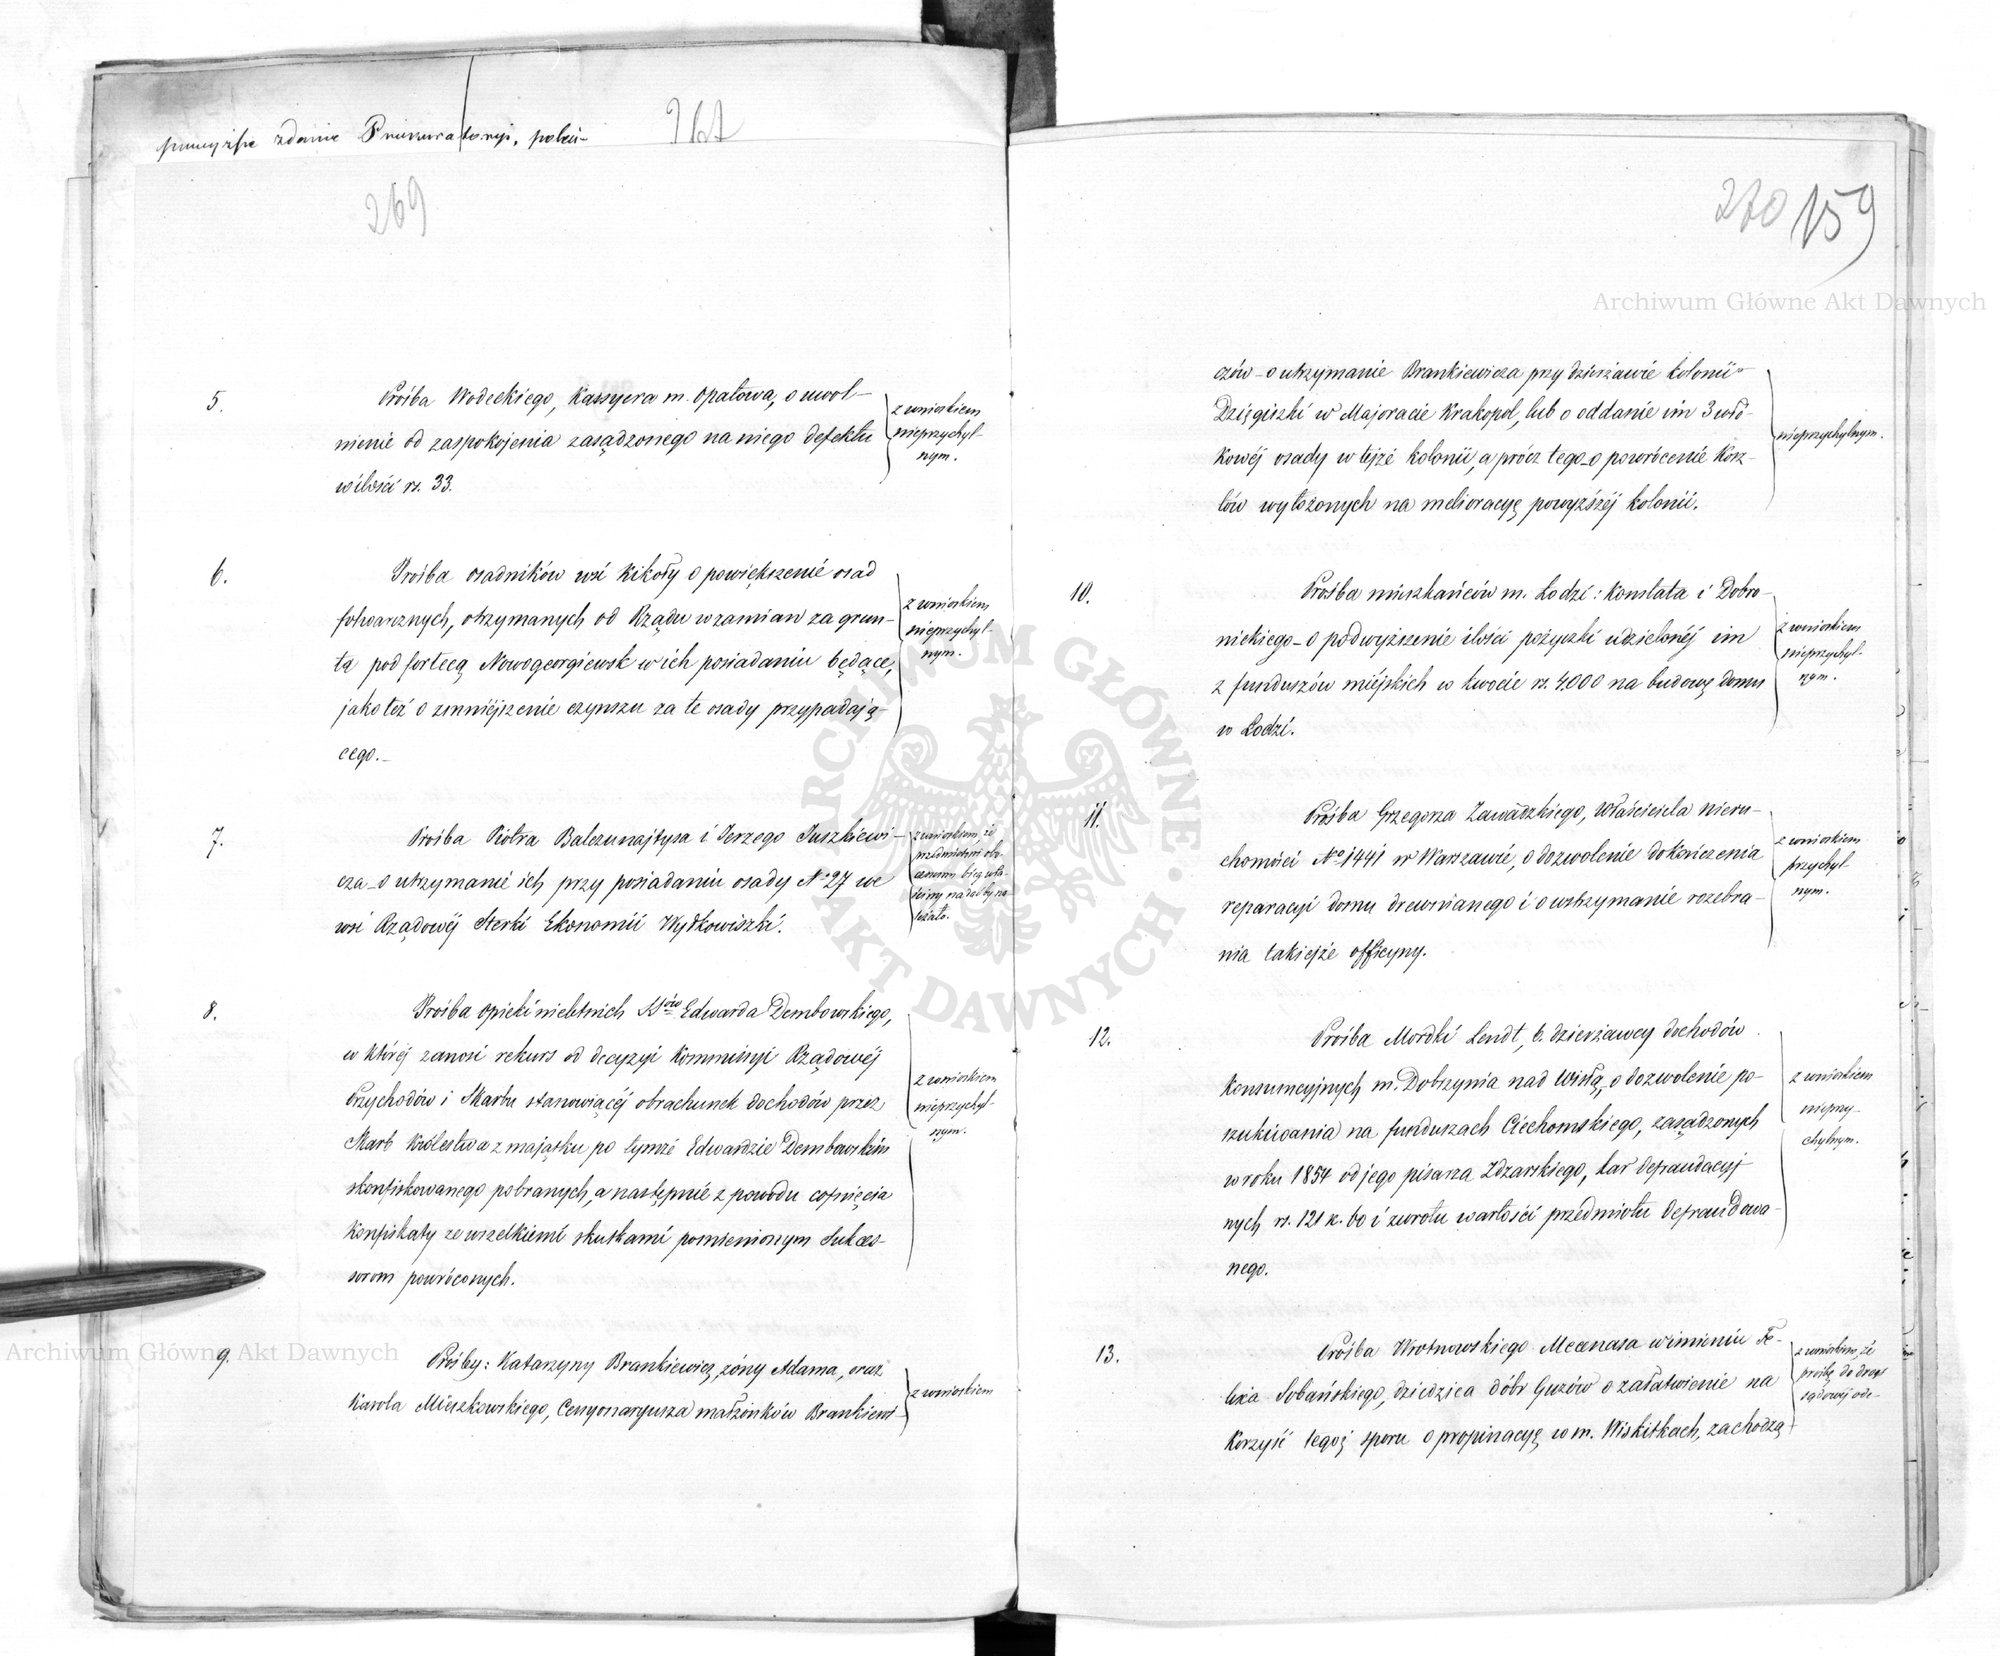 powyższe zdanie Prokuratoryi, poleci-
269
5.
Prośba Wodeckiego, Kassyera m. Opatowa, o uwol-
nienie od zaspokojenia zasądzonego na niego defektu
w ilości rs. 33.
z wnioskiem
nieprzychyl-
nym.
6.
Prośba osadników wsi Kikoły o powiększenie osad
folwarcznych, otrzymanych od Rządu w zamian za grun-
ta pod fortecą Nowogeorgiewsk w ich posiadaniu będące,
jakoteż o zmniejszenie czynszu za te osady przypadają-
cego.-
z wnioskiem
nieprzychyl-
nym.
7.
Prośba Piotra Balczunajtysa i Jerzego Juszkiewi-
cza - o utrzymanie ich przy posiadaniu osady No 27 we
wsi Rządowéj Sterki Ekonomii Wyłkowiszki.
z wnioskiem, że
przedmiotowi obe-
cnemu bieg wła-
ściwy nadać by na-
leżało.
8.
Prośba opieki nieletnich SSów Edwarda Dembowskiego,
w któréj zanosi rekurs od decyzyi Kommissyi Rządowéj
Przychodów i Skarbu stanowiącéj obrachunek dochodów przez
Skarb Królestwa z majątku po tymże Edwardzie Dembowskim
skonfiskowanego pobranych, a następnie z powodu cofnięcia
Konfiskaty ze wszelkiemi skutkami pomienionym Sukces-
sorom powróconych.
z wnioskiem
nieprzychyl-
nym.
9.
Prośby: Katarzyny Brankiewicz, żony Adama, oraz
Karola Mieszkowskiego, Cessyonaryusza małżonków Brankiewi-
z wnioskiem
270 159
czów - o utrzymanie Brankiewicza przy dzierżawie kolonii
Dzięgiszki w Majoracie Krakopol, lub o oddanie im 3 włó-
kowéj osady w tejże kolonii, a prócz tego - o powrócenie Kosz-
tów wyłożonych na melioracyę powyższéj kolonii.
nieprzychylnym.
10.
Prośba mieszkańców m. Łodzi: Konstata i Dobro-
nickiego - o podwyższenie ilości pożyczki udzielonéj im
z funduszów miejskich w kwocie rs. 4000 na budowę domu
w Łodzi.
z wnioskiem
nieprzychyl-
nym.
11.
Prośba Grzegorza Zawadzkiego, Właściciela nieru-
chomości No 1441 w Warszawie, o dozwolenie dokończenia
reparacyi domu drewnianego i o wstrzymanie rozebra-
nia takiejże officyny.
z wnioskiem
przychyl-
nym.
12.
Prośba Mordki Lendt, b. dzierżawcy dochodów
Konsumcyjnych m. Dobrzynia nad Wisłą, o dozwolenie po-
szukiwania na funduszach Ciechomskiego, zasądzonych
w roku 1854 od jego pisarza Zdzarskiego, kar defraudacyj-
nych rs. 121 k. 60 i zwrotu wartości przedmiotu defraudowa-
nego.
z wnioskiem
nieprzy-
chylnym.
13.
Prośba Wrotnowskiego Mecenasa w imieniu Fe-
lixa Sobańskiego, dziedzica dóbr Guzów o załatwienie na
Korzyść tegoż sporu o propinacyę w m. Wiskitkach, zachodzą-
z wnioskiem, że
prośbę do drogi
sądowéj ode-
Archiwum Główne Akt Dawnych
Archiwum Główne Akt Dawnych
ARCHIWUM GŁÓWNE AKT DAWNYCH